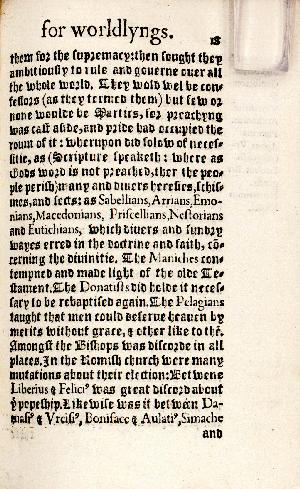 for worldlyngs. 18
them for the supremacy: then sought they
ambitiously to rule and governe over all
the whole world. They wold wel be con-
fessors (as they termed them) but few or
none woulde be Martirs, for preachyng
was cast aside, and pride had occupied the
roum of it: wherupon did folow of neces-
sitie, as (Scripture speaketh: where as
Gods word is not preached, ther the peo-
ple perish) many and divers heresies, schis-
mes, and sects: as Sabellians, Arrians, Emo-
nians, Macedonians, Priscellians, Nestorians
and Eutichians, which divers and sundry
wayes erred in the doctrine and faith, cō-
cerning the divinitie. The Maniches con-
tempned and made light of the olde Te-
stament. The Donatists did holde it neces-
sary to be rebaptised again. The Pelagians
taught that men could deserve heaven by
merits without grace, & other like to thē.
Amongst the Bishops was discorde in all
places. In the Romish church were many
mutations about their election: Betwene
Liberius & Felicꝰ was great discord about
yͤ popeship. Likewise was it betwéen Da-
masꝰ & Vrcisꝰ, Boniface & Aulatꝰ, Simache
and